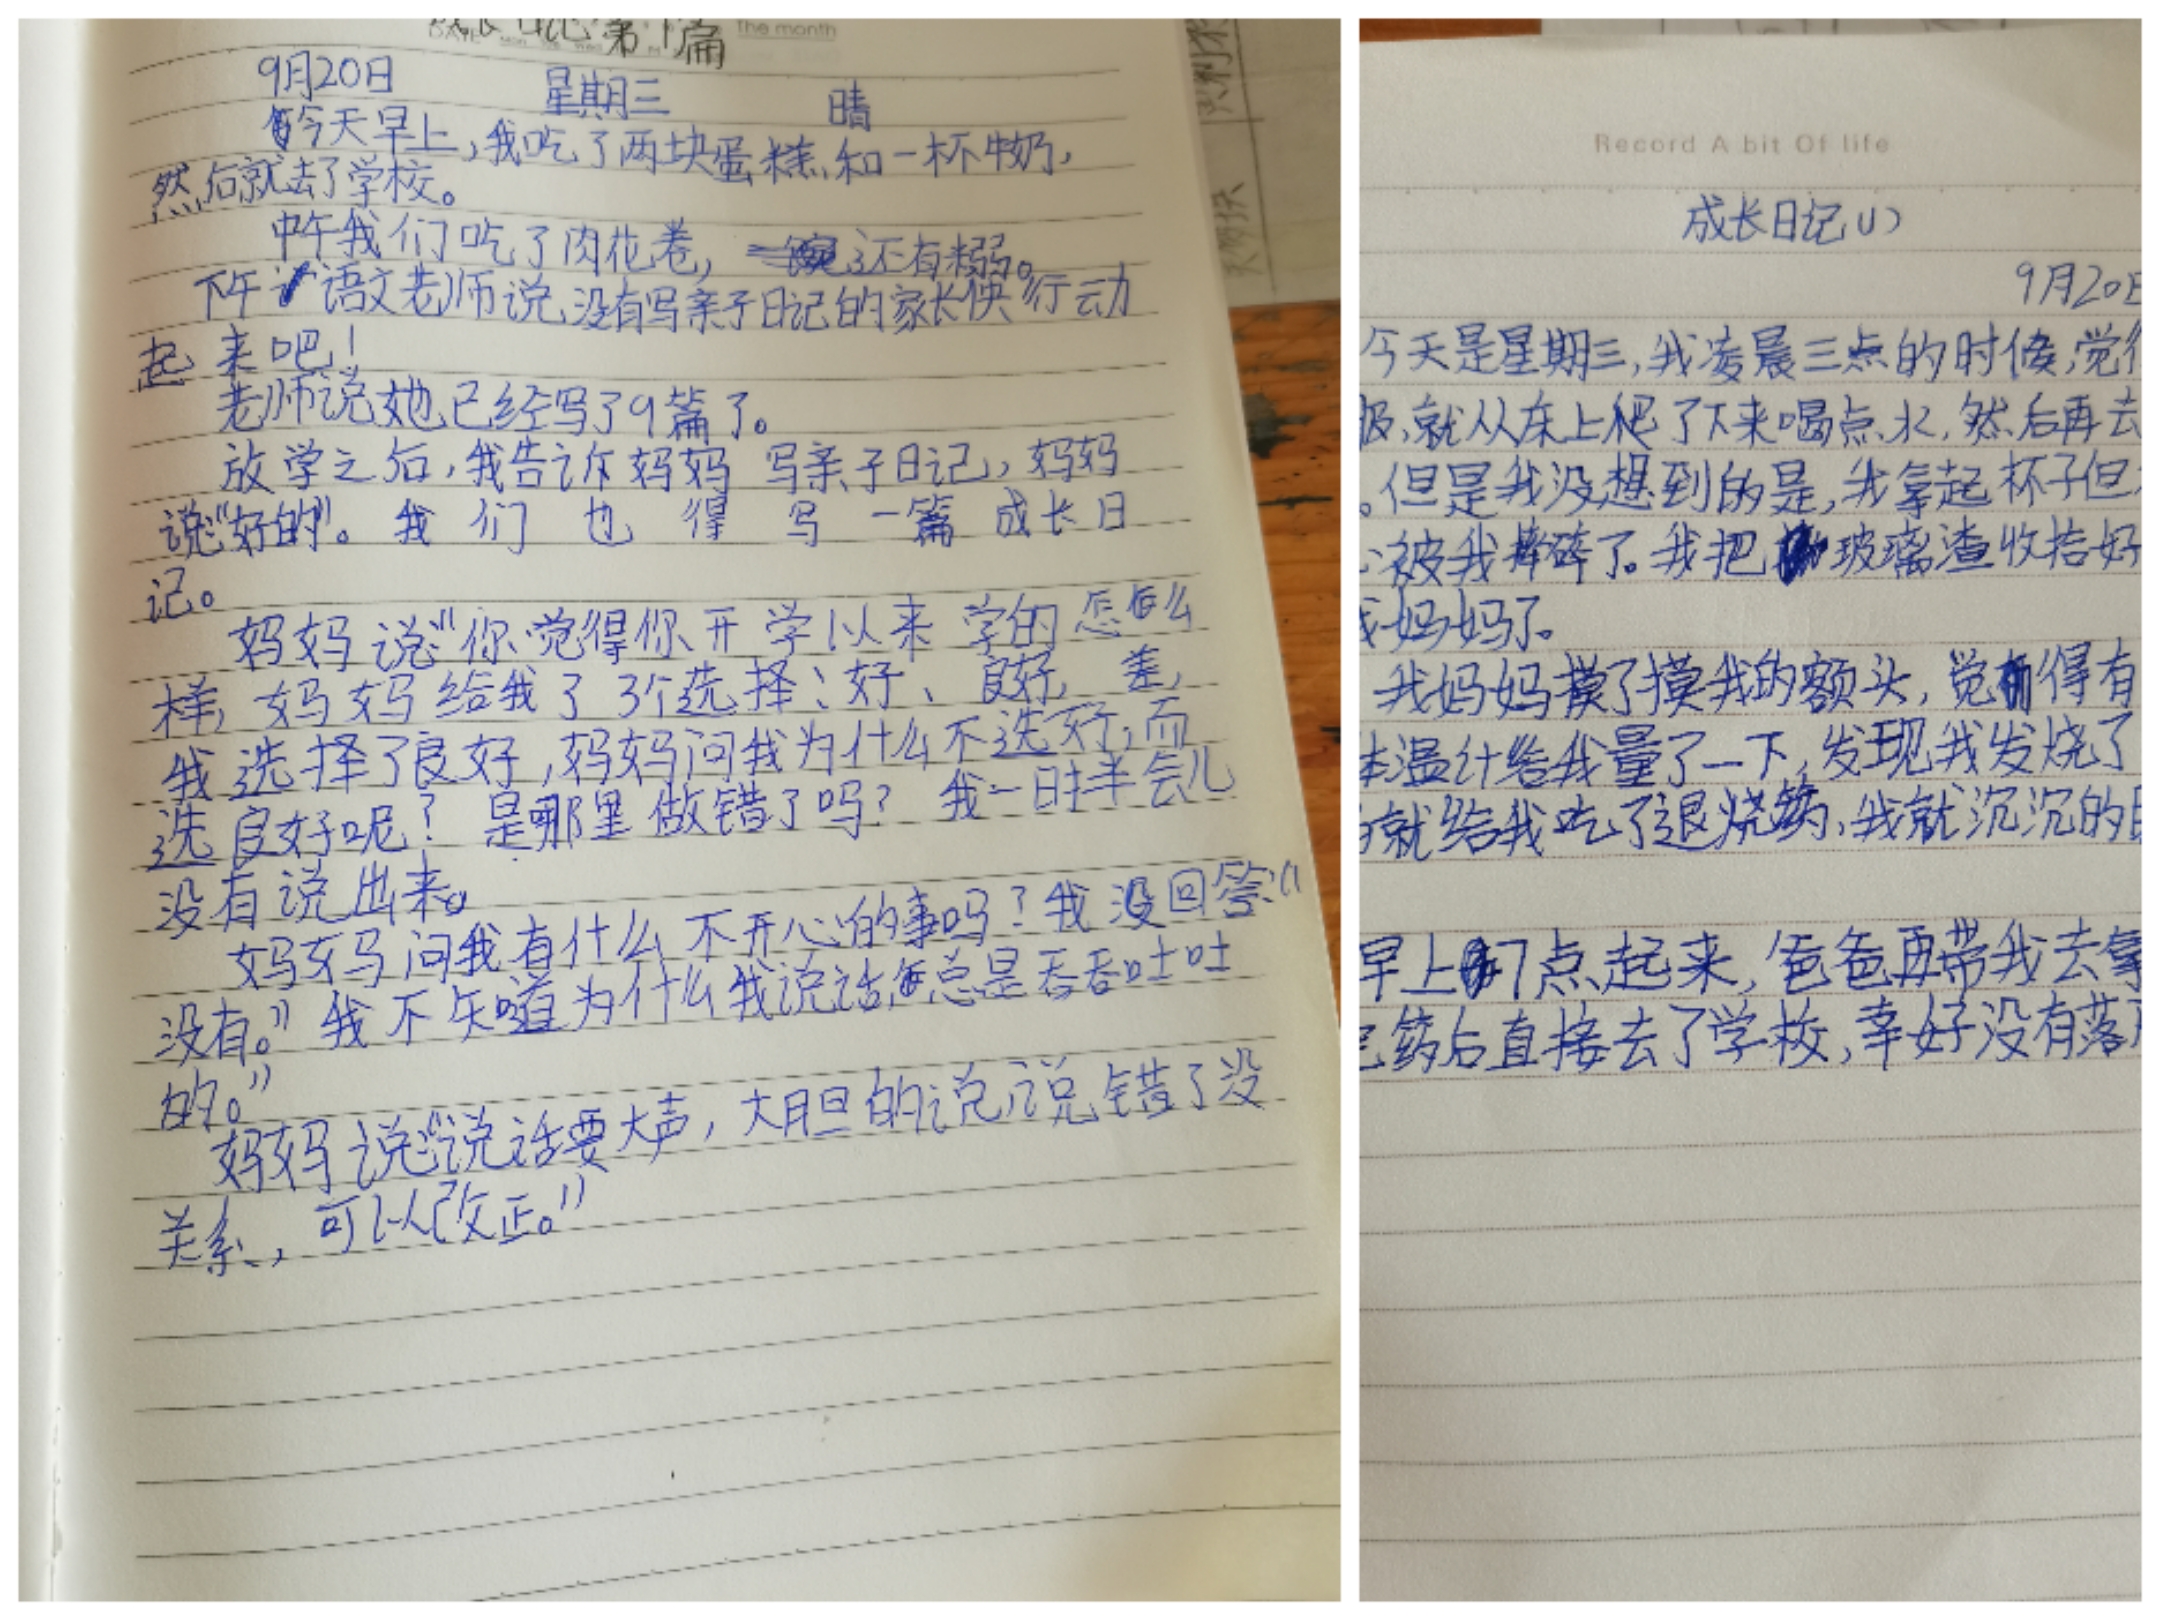 成长日记第1篇
the month
9月20日 星期三 晴
今天早上,我吃了两块蛋糕和一杯牛奶,
然后就去了学校。
中午我们吃了肉花卷,还有粥。
下午语文老师说没有写亲子日记的家长快行动
起来吧!
老师说她已经写了9篇了。
放学之后,我告诉妈妈写亲子日记,妈妈
说:“好的”。我们也得写一篇成长日
记。
妈妈说:“你觉得你开学以来学的怎么
样,妈妈给我了3个选择:好、良好,差,
我选择了良好,妈妈问我为什么不选好,而
选良好呢?是哪里做错了吗?我一时半会儿
没有说出来。
妈妈问我有什么不开心的事吗?我没回答:“
没有。”我不知道为什么我说话总是吞吞吐吐
的。”
妈妈说:“说话要大声,大胆的说,说错了没
关系,可以改正。”
Record A bit Of life
成长日记(1)
9月20日
今天是星期三,我凌晨三点的时候,觉
就从床上爬了下来喝点水,然后再去
。但是我没想到的是,我拿起杯子但
被我摔碎了。我把玻璃渣收拾好
妈妈了。
我妈妈摸了摸我的额头,觉得有
体温计给我量了一下,发现我发烧了
就给我吃了退烧药,我就沉沉的
早上7点起来,爸爸再带我去拿
药后直接去了学校,幸好没有落